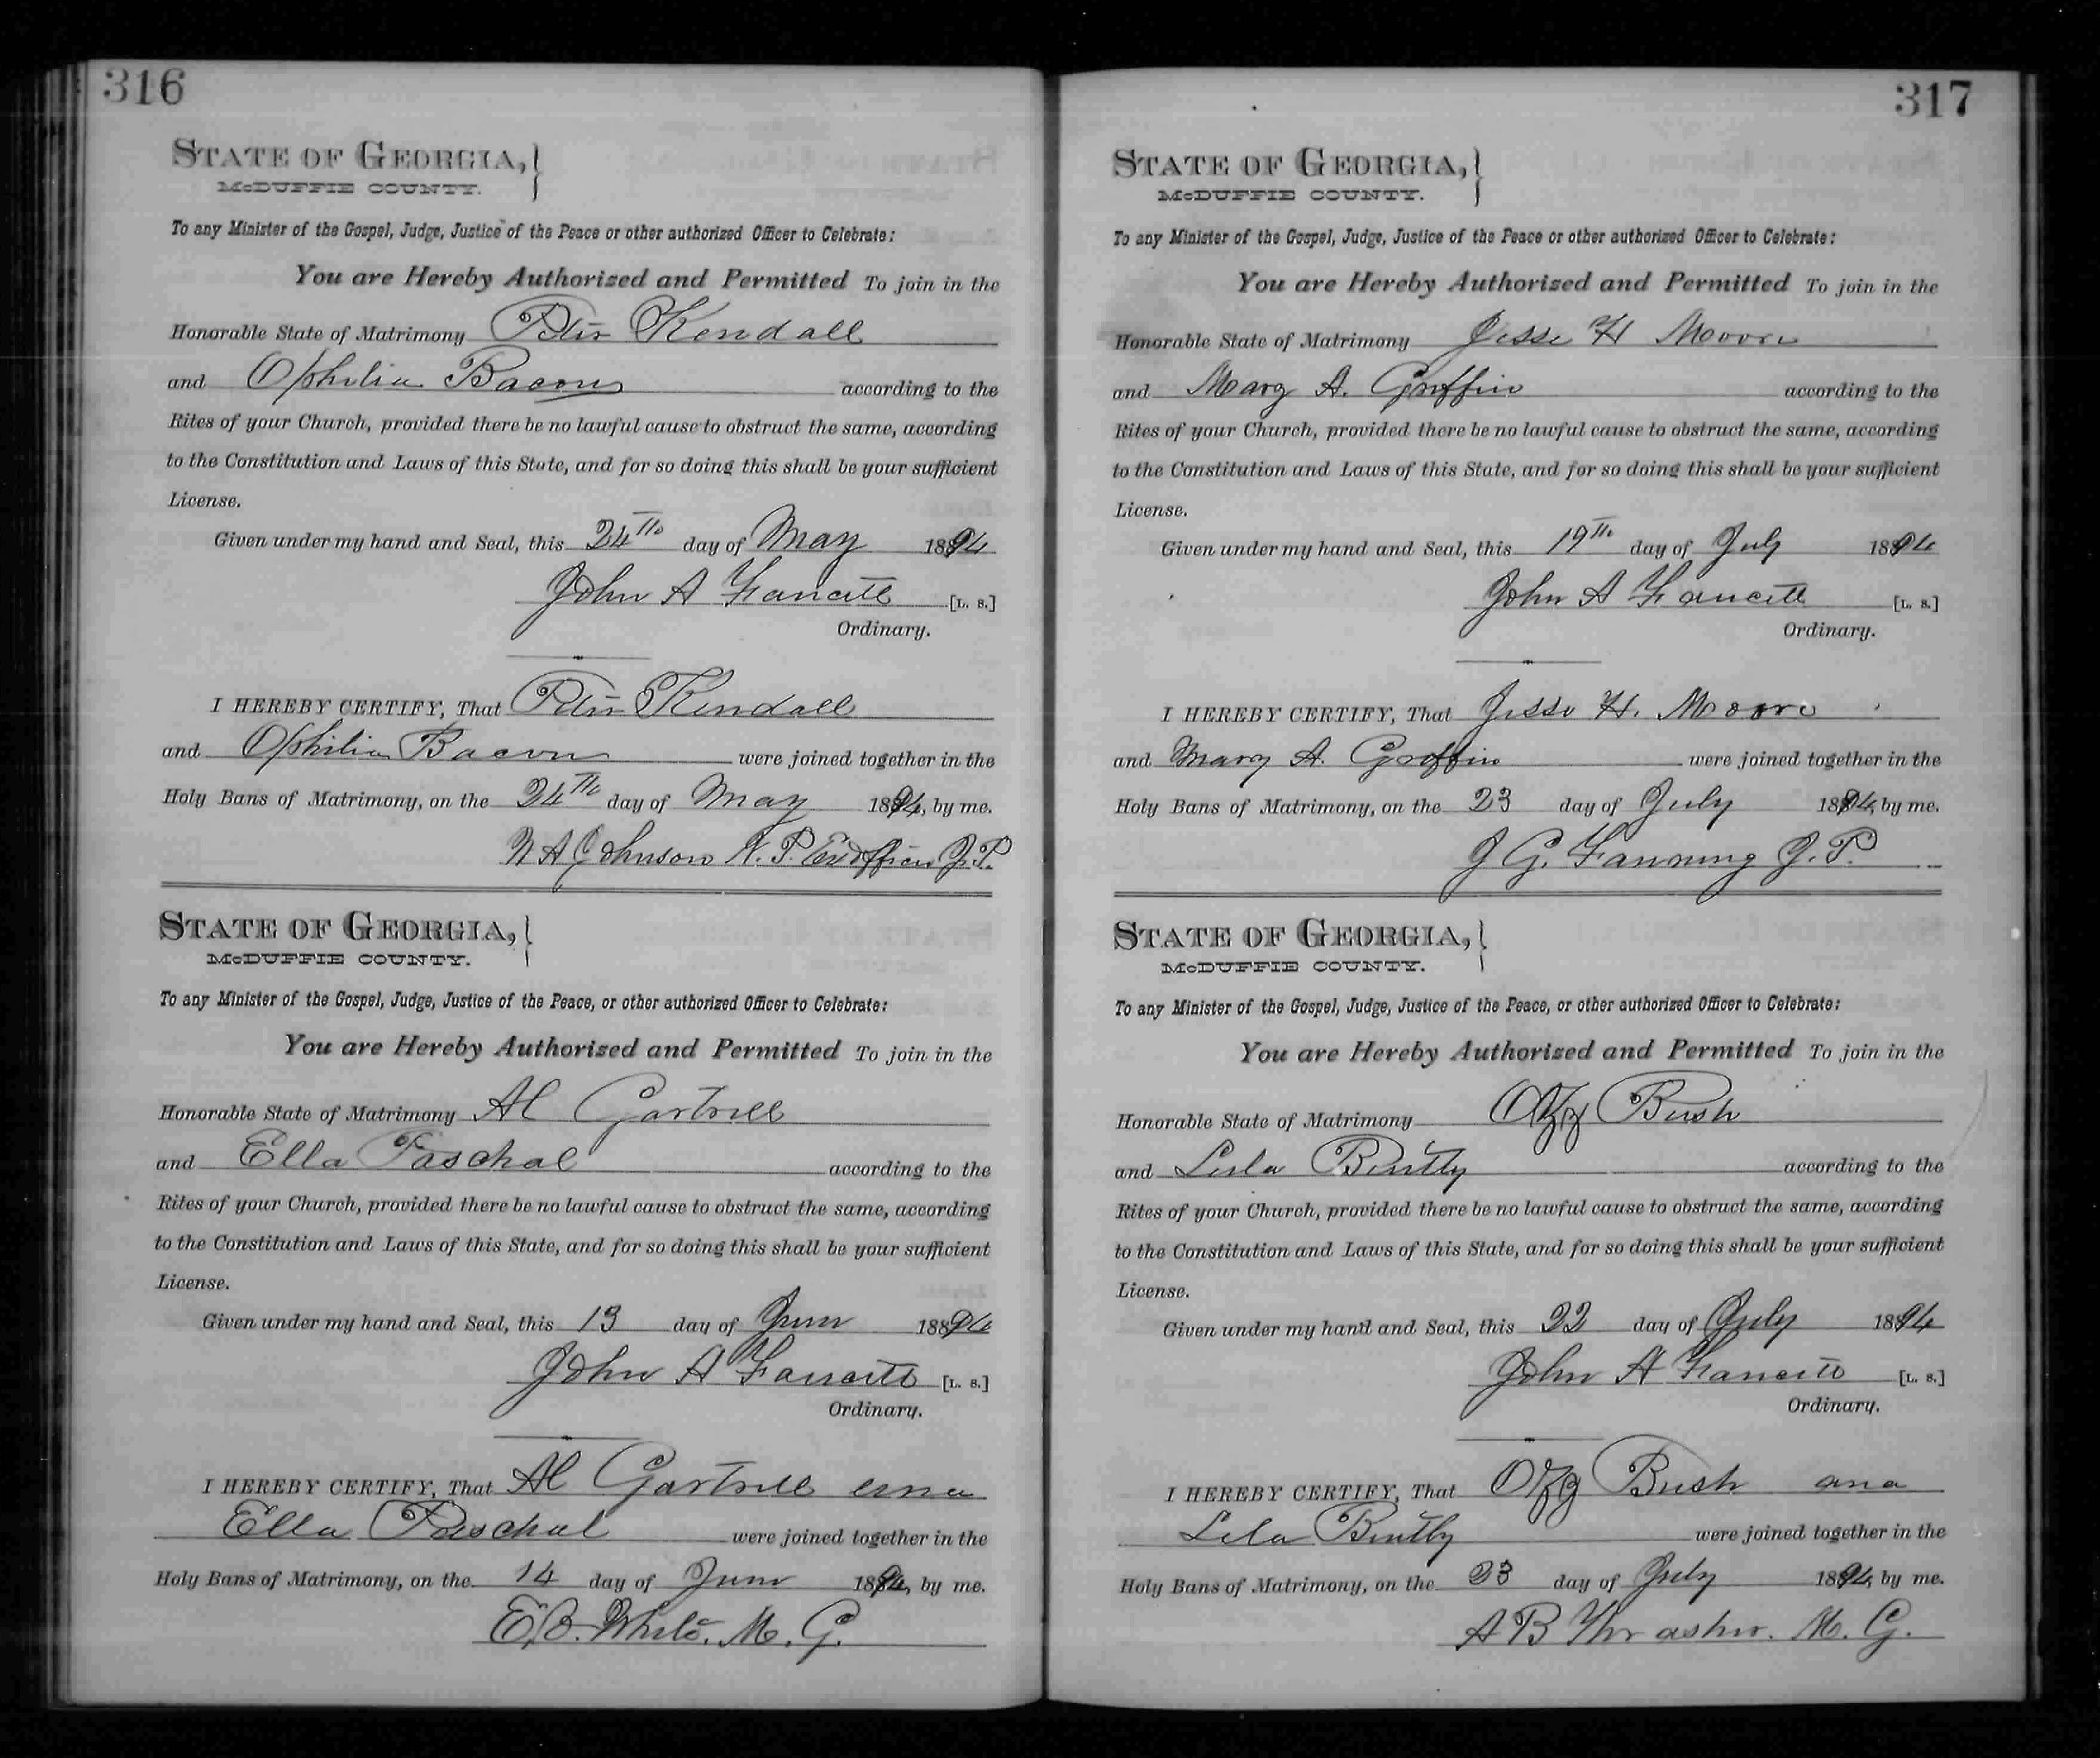 316
STATE OF GEORGIA,
McDUFFIE COUNTY.
To any Minister of the Gospel, Judge, Justice of the Peace or other authorized Officer to Celebrate:
You are Hereby Authorized and Permitted To join in the
Honorable State of Matrimony Peter Kendall
and Ophelia Bacon according to the
Rites of your Church, provided there be no lawful cause to obstruct the same, according
to the Constitution and Laws of this State, and for so doing this shall be your sufficient
License.
Given under my hand and Seal, this 24th day of May 1894
John A [L. S.]
Ordinary.
I HEREBY CERTIFY, That Peter Kendall
and Ophelia Bacon were joined together in the
Holy Bans of Matrimony, on the 24th day of May 1894, by me.
Johnson N. P. Exofficio J. P.
STATE OF GEORGIA,
McDUFFIE COUNTY.
To any Minister of the Gospel, Judge, Justice of the Peace, or other authorized Officer to Celebrate:
You are Hereby Authorized and Permitted To join in the
Honorable State of Matrimony Al Gartrell
and Ella Paschal according to the
Rites of your Church, provided there be no lawful cause to obstruct the same, according
to the Constitution and Laws of this State, and for so doing this shall be your sufficient
License.
Given under my hand and Seal, this 13 day of June 1894
John A [L. S.]
Ordinary.
I HEREBY CERTIFY, That Al Gartrell and
Ella Paschal were joined together in the
Holy Bans of Matrimony, on the 14 day of June 1894, by me.
E. B. White. M. G.
317
STATE OF GEORGIA,
McDUFFIE COUNTY.
To any Minister of the Gospel, Judge, Justice of the Peace or other authorized Officer to Celebrate:
You are Hereby Authorized and Permitted To join in the
Honorable State of Matrimony Jesse H Moore
and Mary A. Griffin according to the
Rites of your Church, provided there be no lawful cause to obstruct the same, according
to the Constitution and Laws of this State, and for so doing this shall be your sufficient
License.
Given under my hand and Seal, this 19th day of July 1894
John A [L. S.]
Ordinary.
I HEREBY CERTIFY, That Jesse H. Moore
and Mary A. Griffin were joined together in the
Holy Bans of Matrimony, on the 23 day of July 1894, by me.
J G. Fanning J. P.
STATE OF GEORGIA,
McDUFFIE COUNTY.
To any Minister of the Gospel, Judge, Justice of the Peace, or other authorized Officer to Celebrate:
You are Hereby Authorized and Permitted To join in the
Honorable State of Matrimony Bush
and Lula Bently according to the
Rites of your Church, provided there be no lawful cause to obstruct the same, according
to the Constitution and Laws of this State, and for so doing this shall be your sufficient
License.
Given under my hand and Seal, this 22 day of July 1894
John A [L. S.]
Ordinary.
I HEREBY CERTIFY, That Bush and
Lula Bently were joined together in the
Holy Bans of Matrimony, on the 23 day of July 1894, by me.
A B Thrasher. M. G.